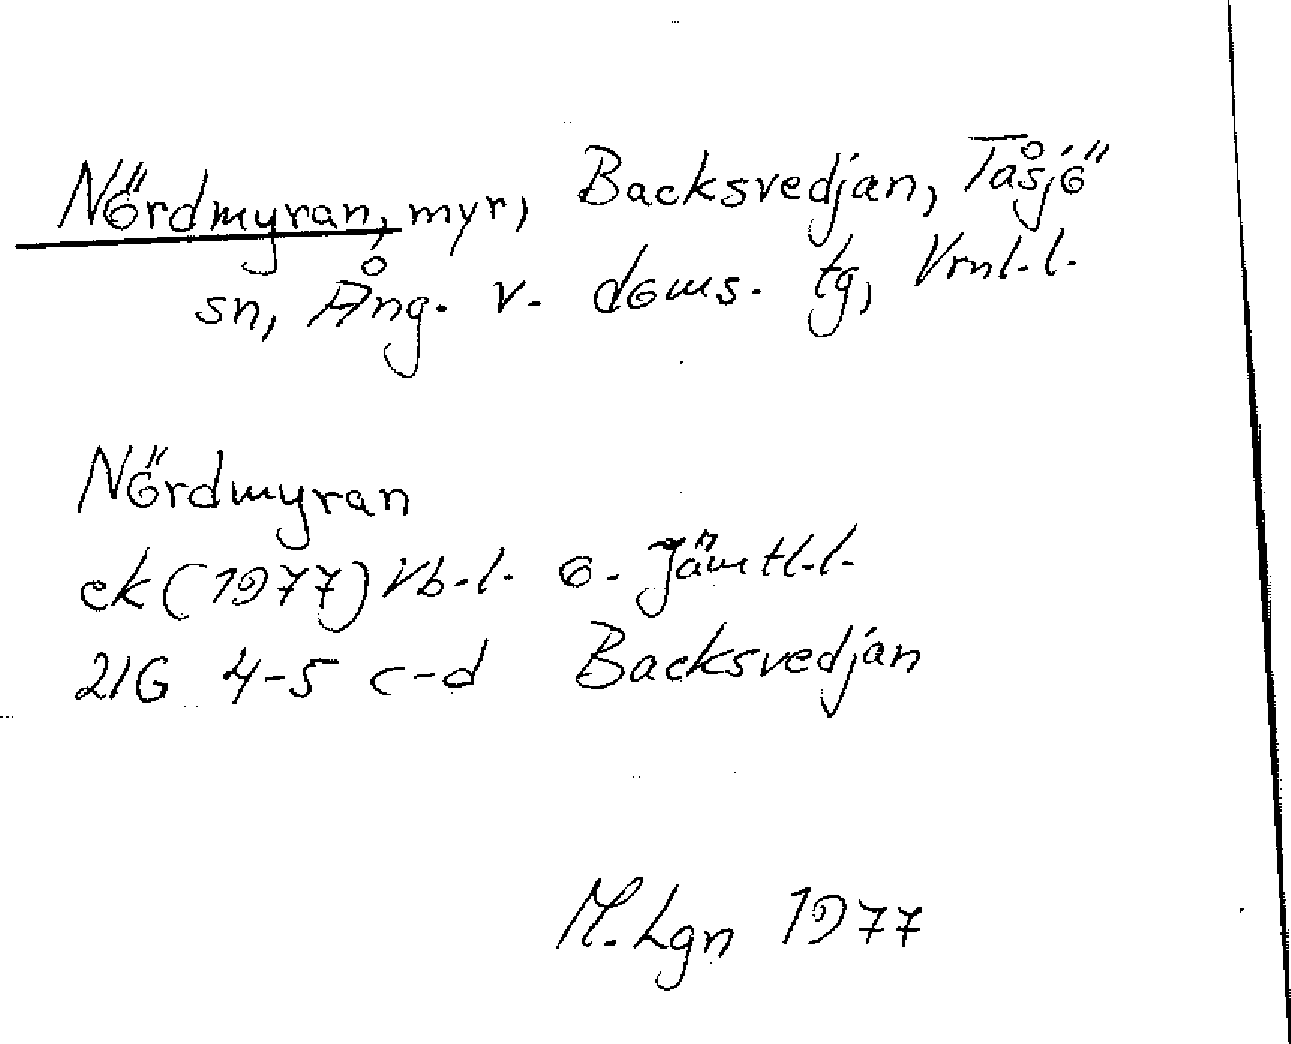 Nördmyran, myr, Backsvedjan, Tåsjö
sn, Ång. v. doms. tg, Vrnl.l.
Nördmyran
ek (1977) Vb.l. o. Jämtl.l.
21G 4-5 c-d Backsvedjan
M. Lgn 1977